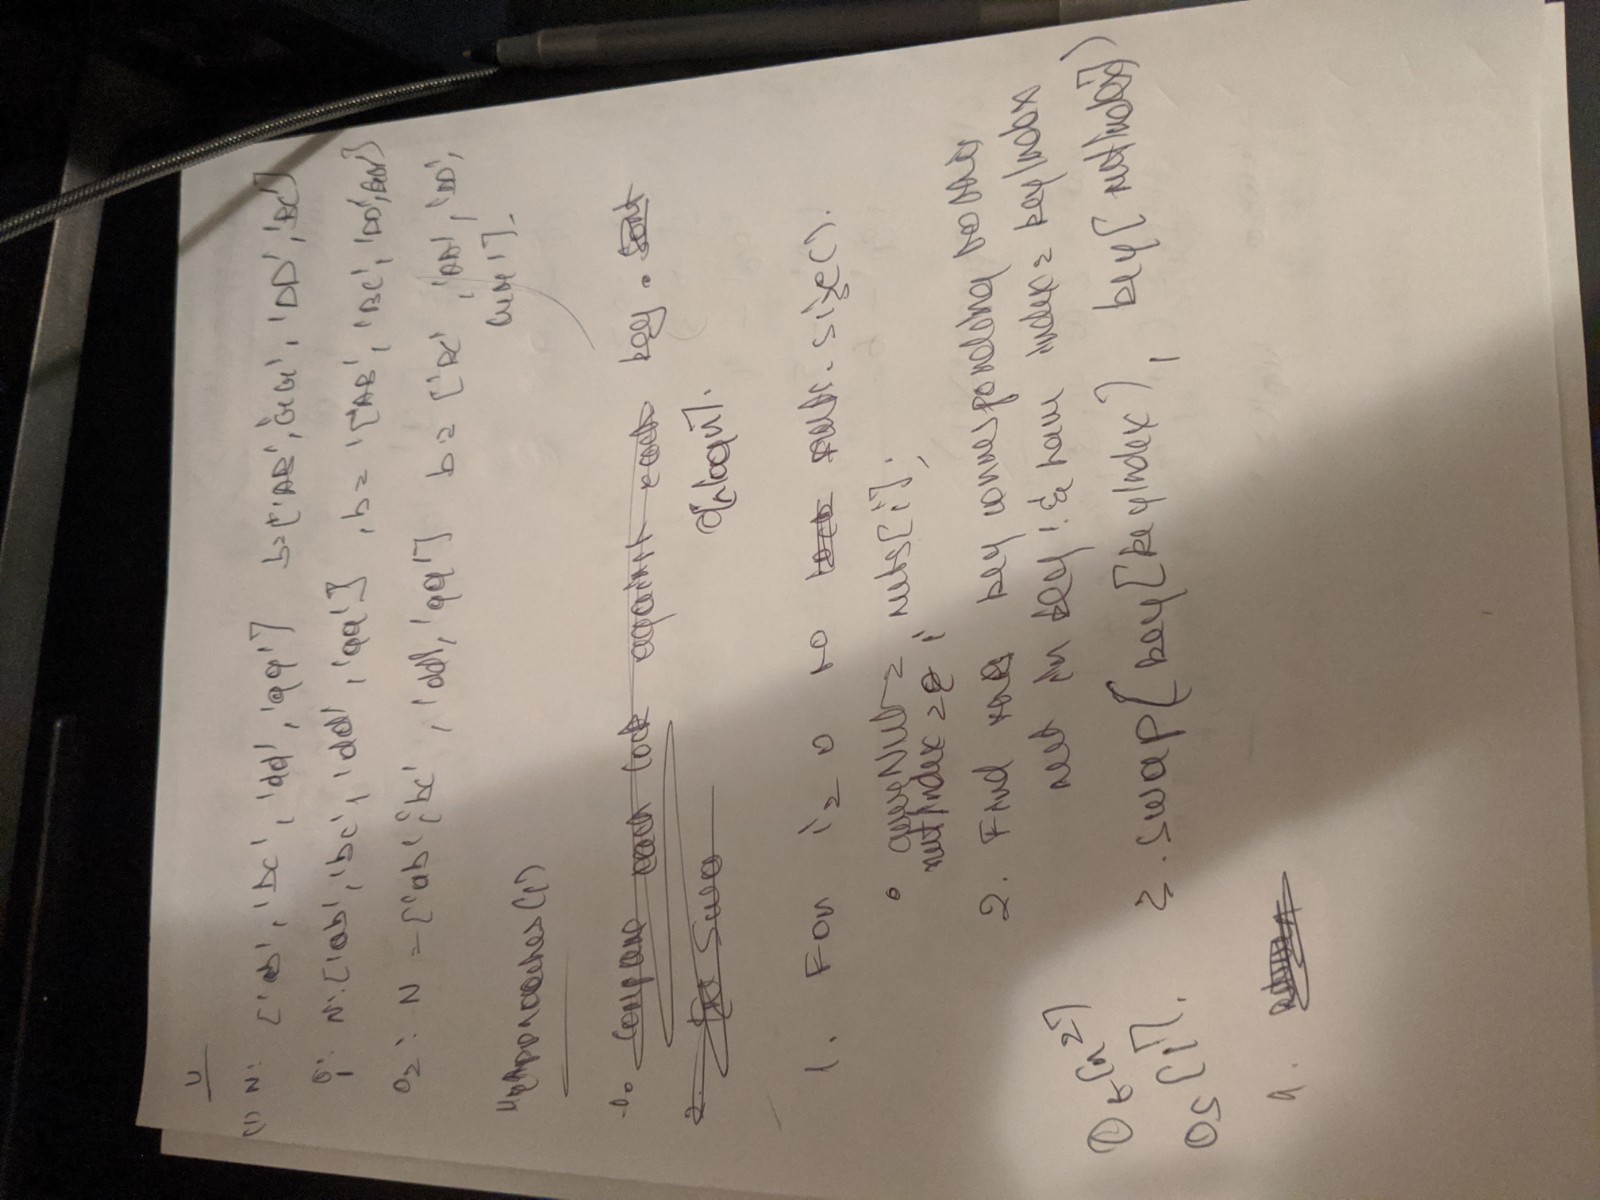 U
(1) N: ['ab', 'bc', 'dd', 'qq'] b=['AB', 'GG', 'DD', 'BC']
O1: N:['ab', 'bc', 'dd', 'qq'] , b = ['AB', 'BC', 'DD',
O2: N = ['ab', 'bc', 'dd', 'qq'] b = ['BC', 'AB', 'DD',
Approaches (1)
Compare each lock against each key. Sort
2.
O(nlogn).
1. For i = 0 to size().
• currNut = nuts[i];
nutIndex = i
2. Find the key corresponding to the
nut in key & have index = keyIndex
3. swap(key[keyIndex], key[nutIndex])
① t(n^2)
OS [1].
4.